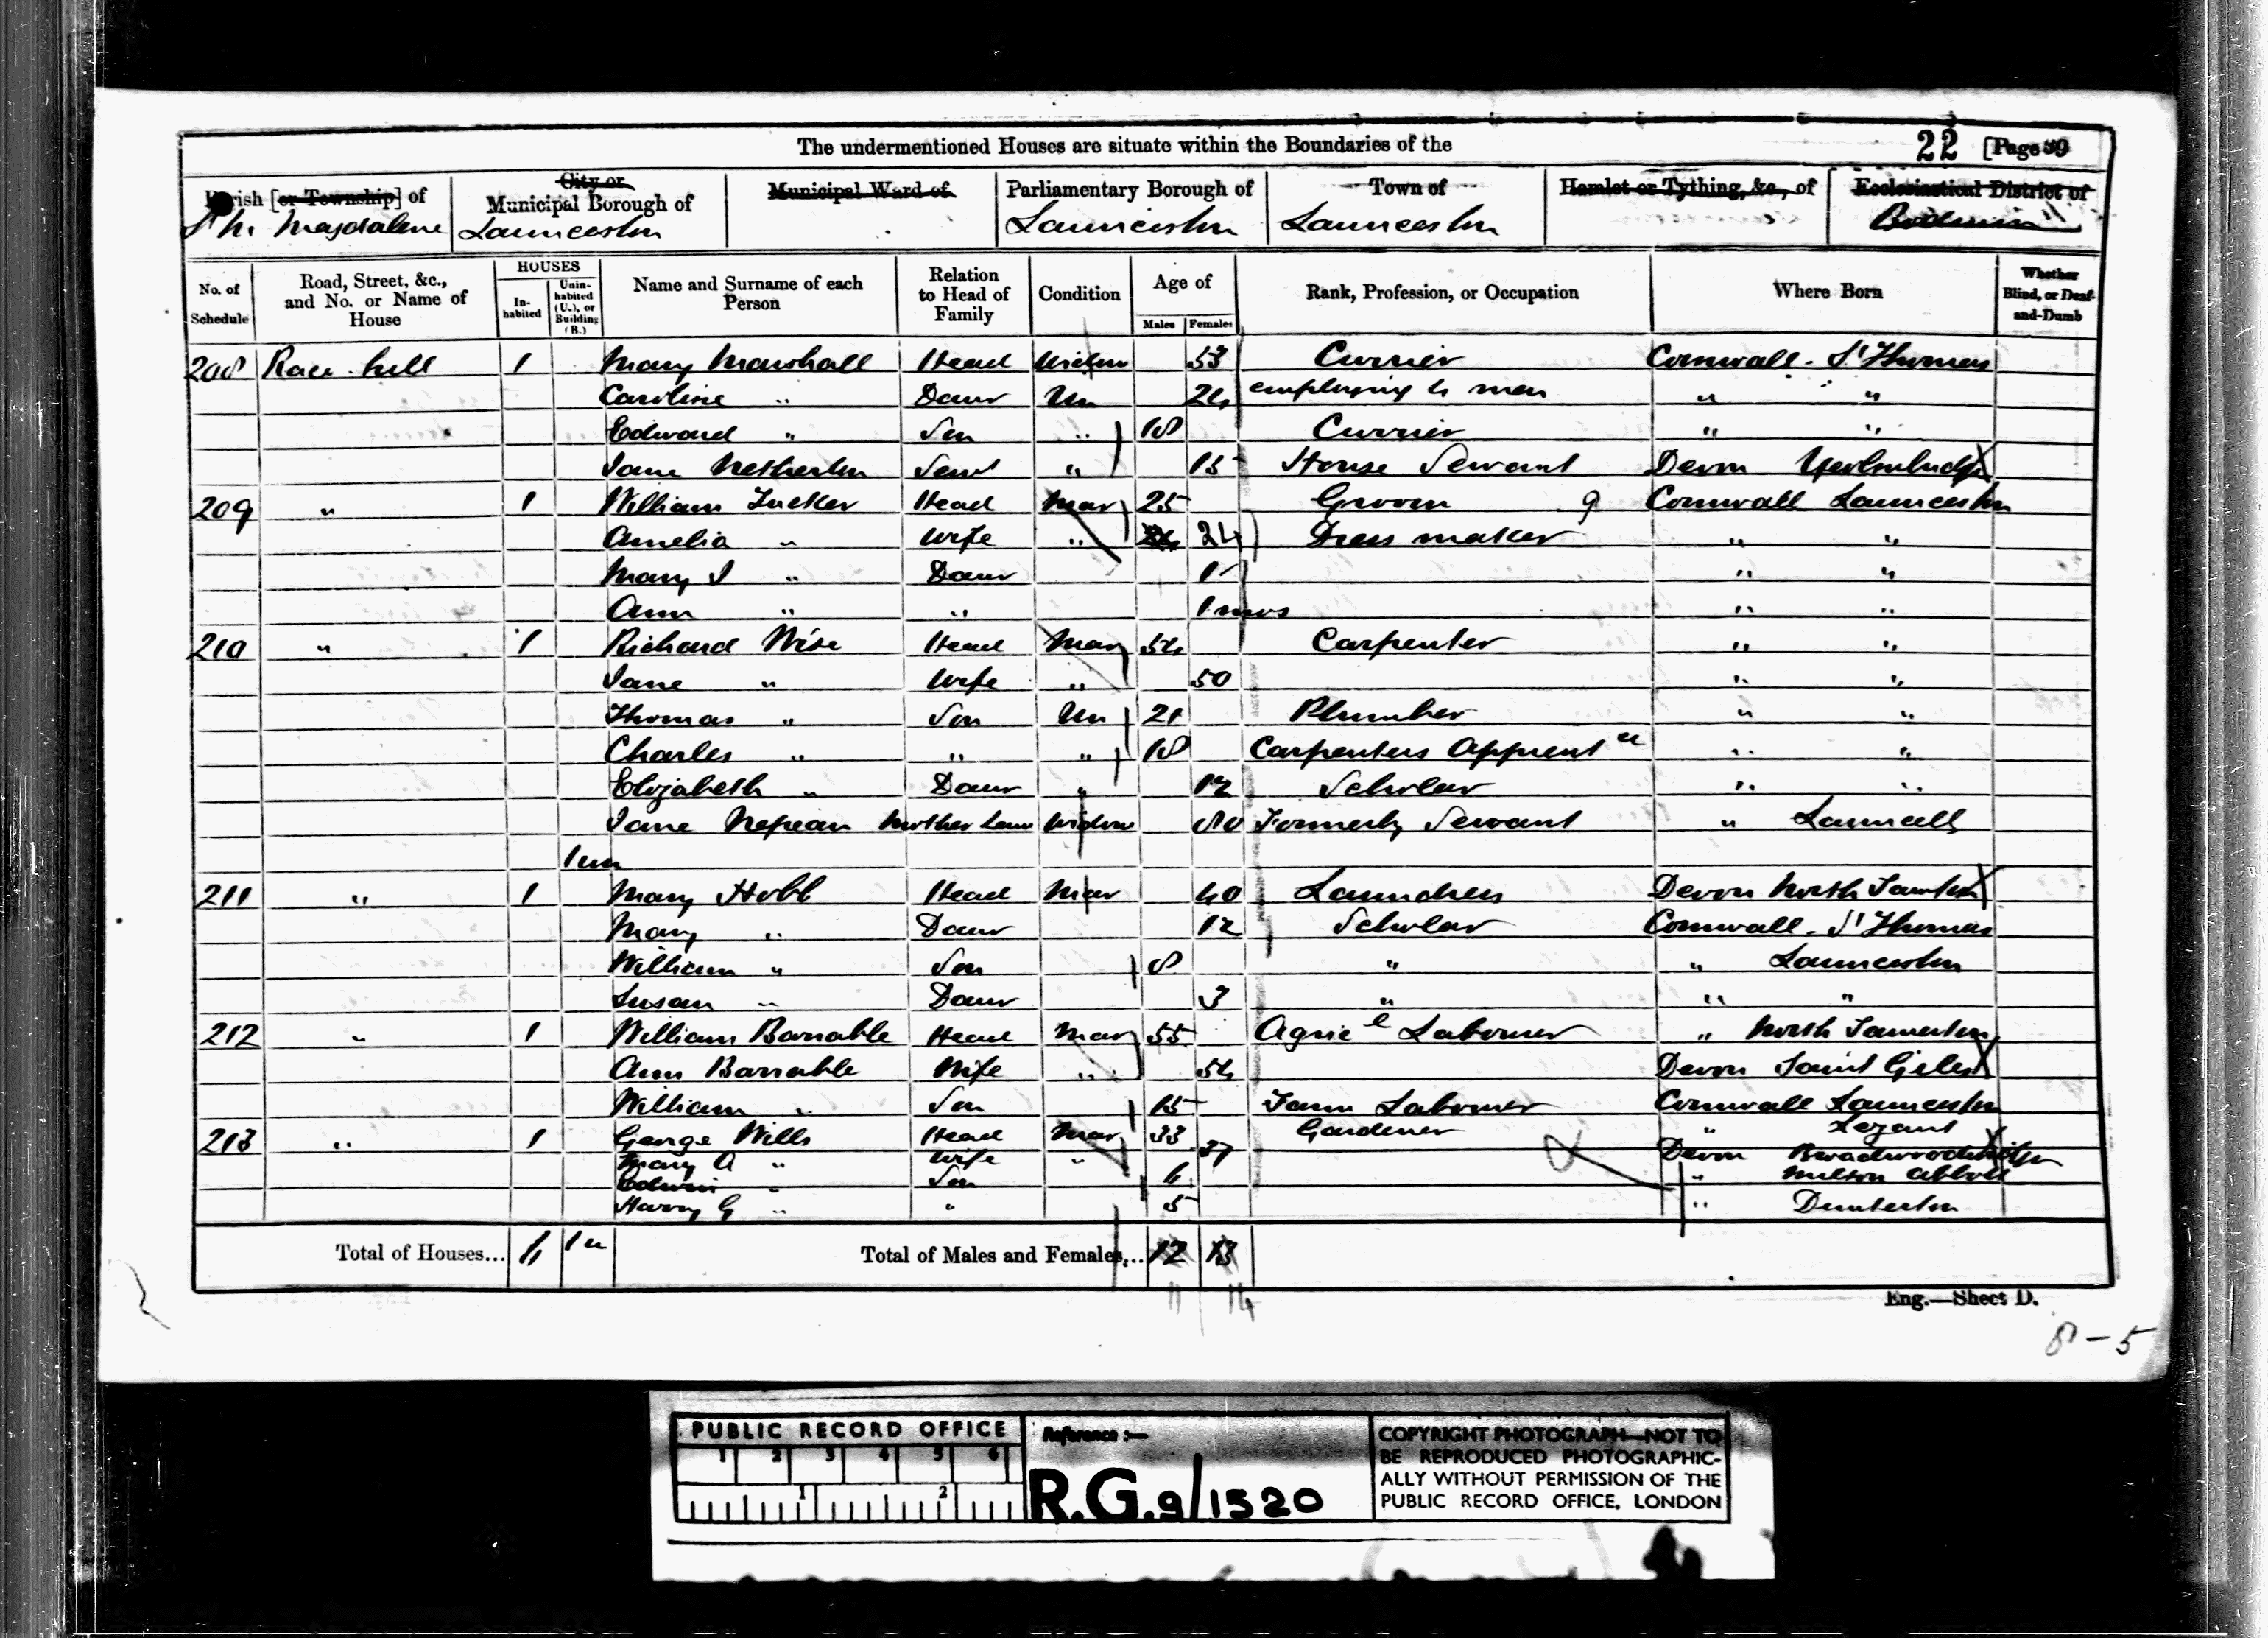 The undermentioned Houses are situate within the Boundaries of the 22 [Page 39
Parish [or Township] of City or Municipal Borough of Municipal Ward of Parliamentary Borough of Town of Hamlet or Tything, &c., of Ecclesiastical District of
Magdalene Launceston Launceston Launceston Bodmin
No. of Schedule Road, Street, &c., and No. or Name of House HOUSES Inhabited Uninhabited (U.), or Building (B.) Name and Surname of each Person Relation to Head of Family Condition Age of Males Females Rank, Profession, or Occupation Where Born Whether Blind, or Deaf-and-Dumb
208 Race hill 1 Mary Marshall Head Widow 53 Currier Cornwall - St Thomas
Caroline " Daur Un 24 employing 4 men " "
Edward " Son " 18 Currier " "
Jane Netherton Servt " 15 House Servant Devon
209 " 1 William Tucker Head Mar 25 Groom 9 Cornwall Launceston
Amelia " Wife " 24 Dress maker " "
Mary J " Daur 1 " "
Ann " " 1 mos " "
210 " 1 Richard Wise Head Mar 54 Carpenter " "
Jane " Wife " 50 " "
Thomas " Son Un 21 Plumber " "
Charles " " " 18 Carpenters Apprent ce " "
Elizabeth " Daur " 12 Scholar " "
Jane Nepean Mother Law Widow 80 Formerly Servant " Launcells
1 un
211 " 1 Mary Hobb Head Mar 40 Laundress Devon North Tawton
Mary " Daur 12 Scholar Cornwall - St Thomas
William " Son 8 " " Launceston
Susan " Daur 3 " " "
212 " 1 William Barrable Head Mar 55 Agric l Labourer " North Tamerton
Ann Barrable Wife " 54 Devon Saint Giles
William " Son 15 Farm Labourer Cornwall Launceston
213 " 1 George Wills Head Mar 33 Gardener " Lezant
Mary A " Wife " 37 Devon Broadwoodwidger
Edwin " Son 6 " Milton Abbott
Harry G " " 5 " Dunterton
Total of Houses... 6 1 u Total of Males and Females... 12 13
11 14
Eng.—Sheet D.
8 - 5
PUBLIC RECORD OFFICE
1 2 3 4 5 6
1 2
Reference :—
R.G. 9/1520
COPYRIGHT PHOTOGRAPH—NOT TO
BE REPRODUCED PHOTOGRAPHIC-
ALLY WITHOUT PERMISSION OF THE
PUBLIC RECORD OFFICE, LONDON